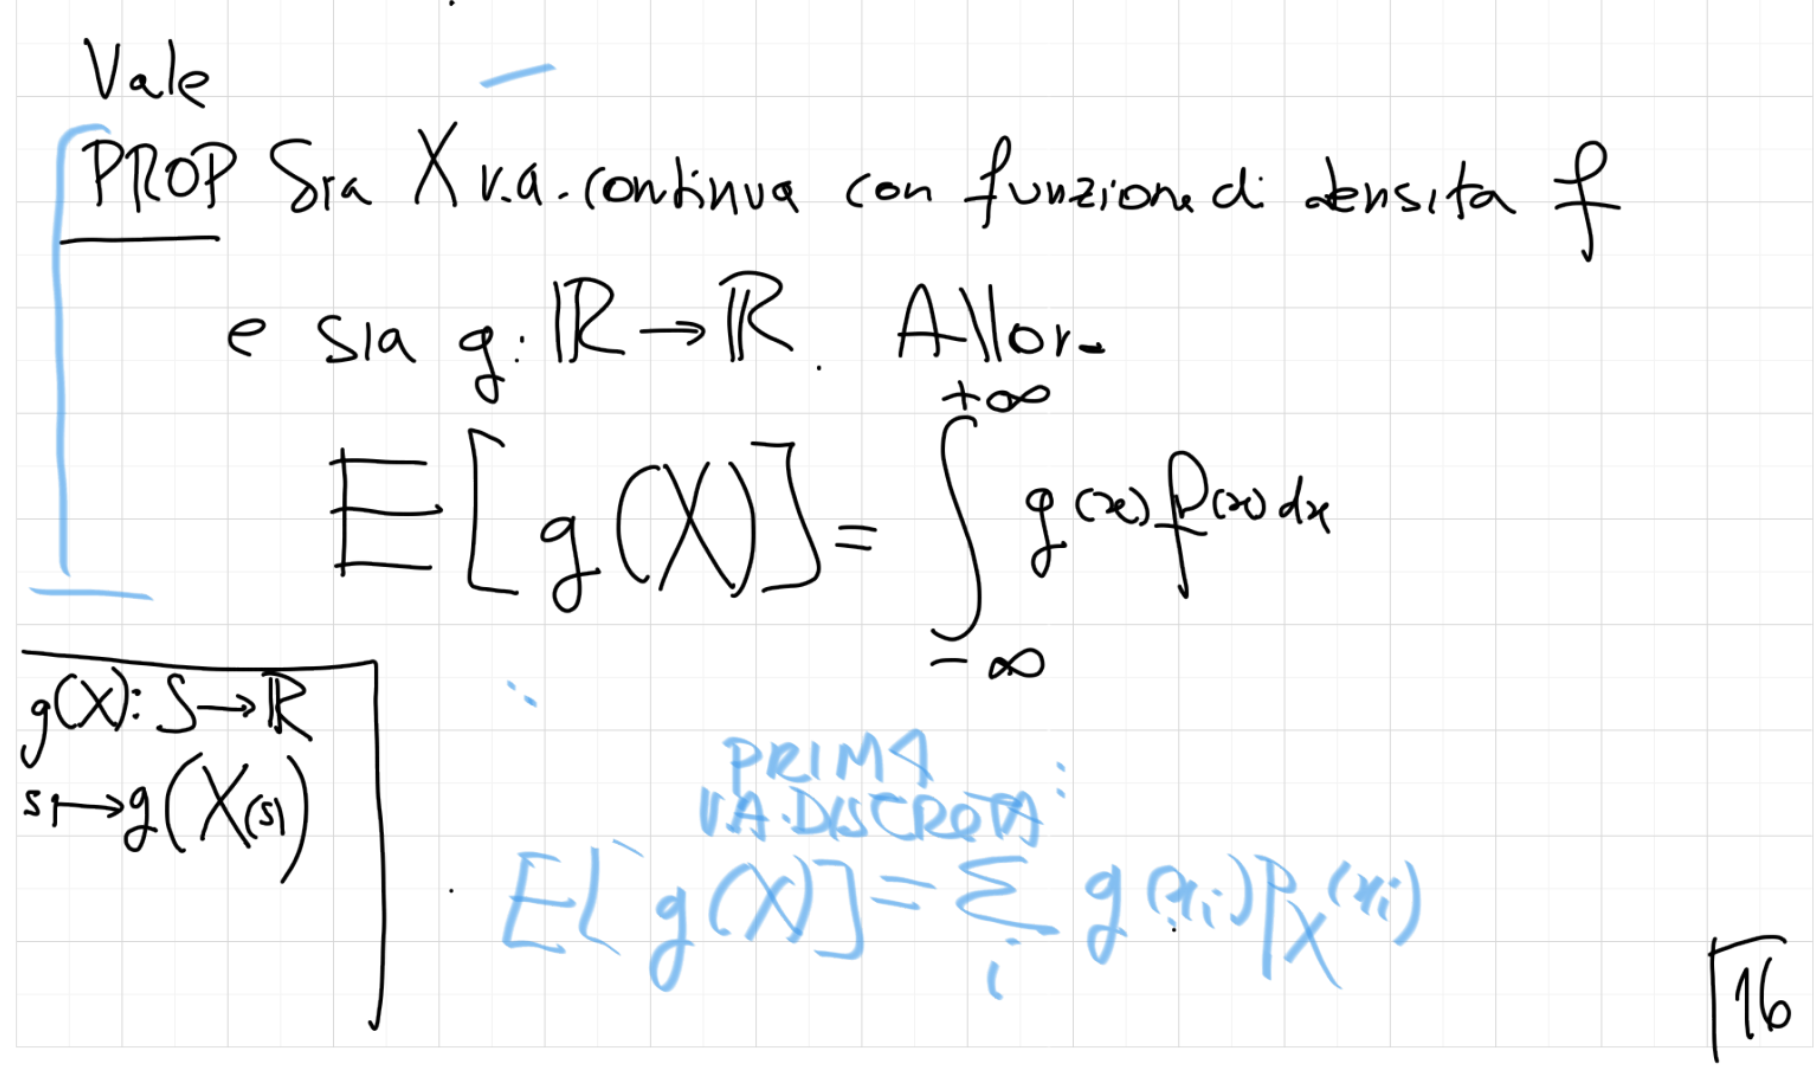 Vale
PROP Sia X v.a. continua con funzione di densita f
e sia g: ℝ → ℝ. Allora
E[g(X)] = ∫_{-∞}^{+∞} g(x) f(x) dx
g(X): S → ℝ
s ↦ g(X(s))
PRIMA
V.A. DISCRETA:
E[g(X)] = Σ_i g(x_i) P_X(x_i)
16